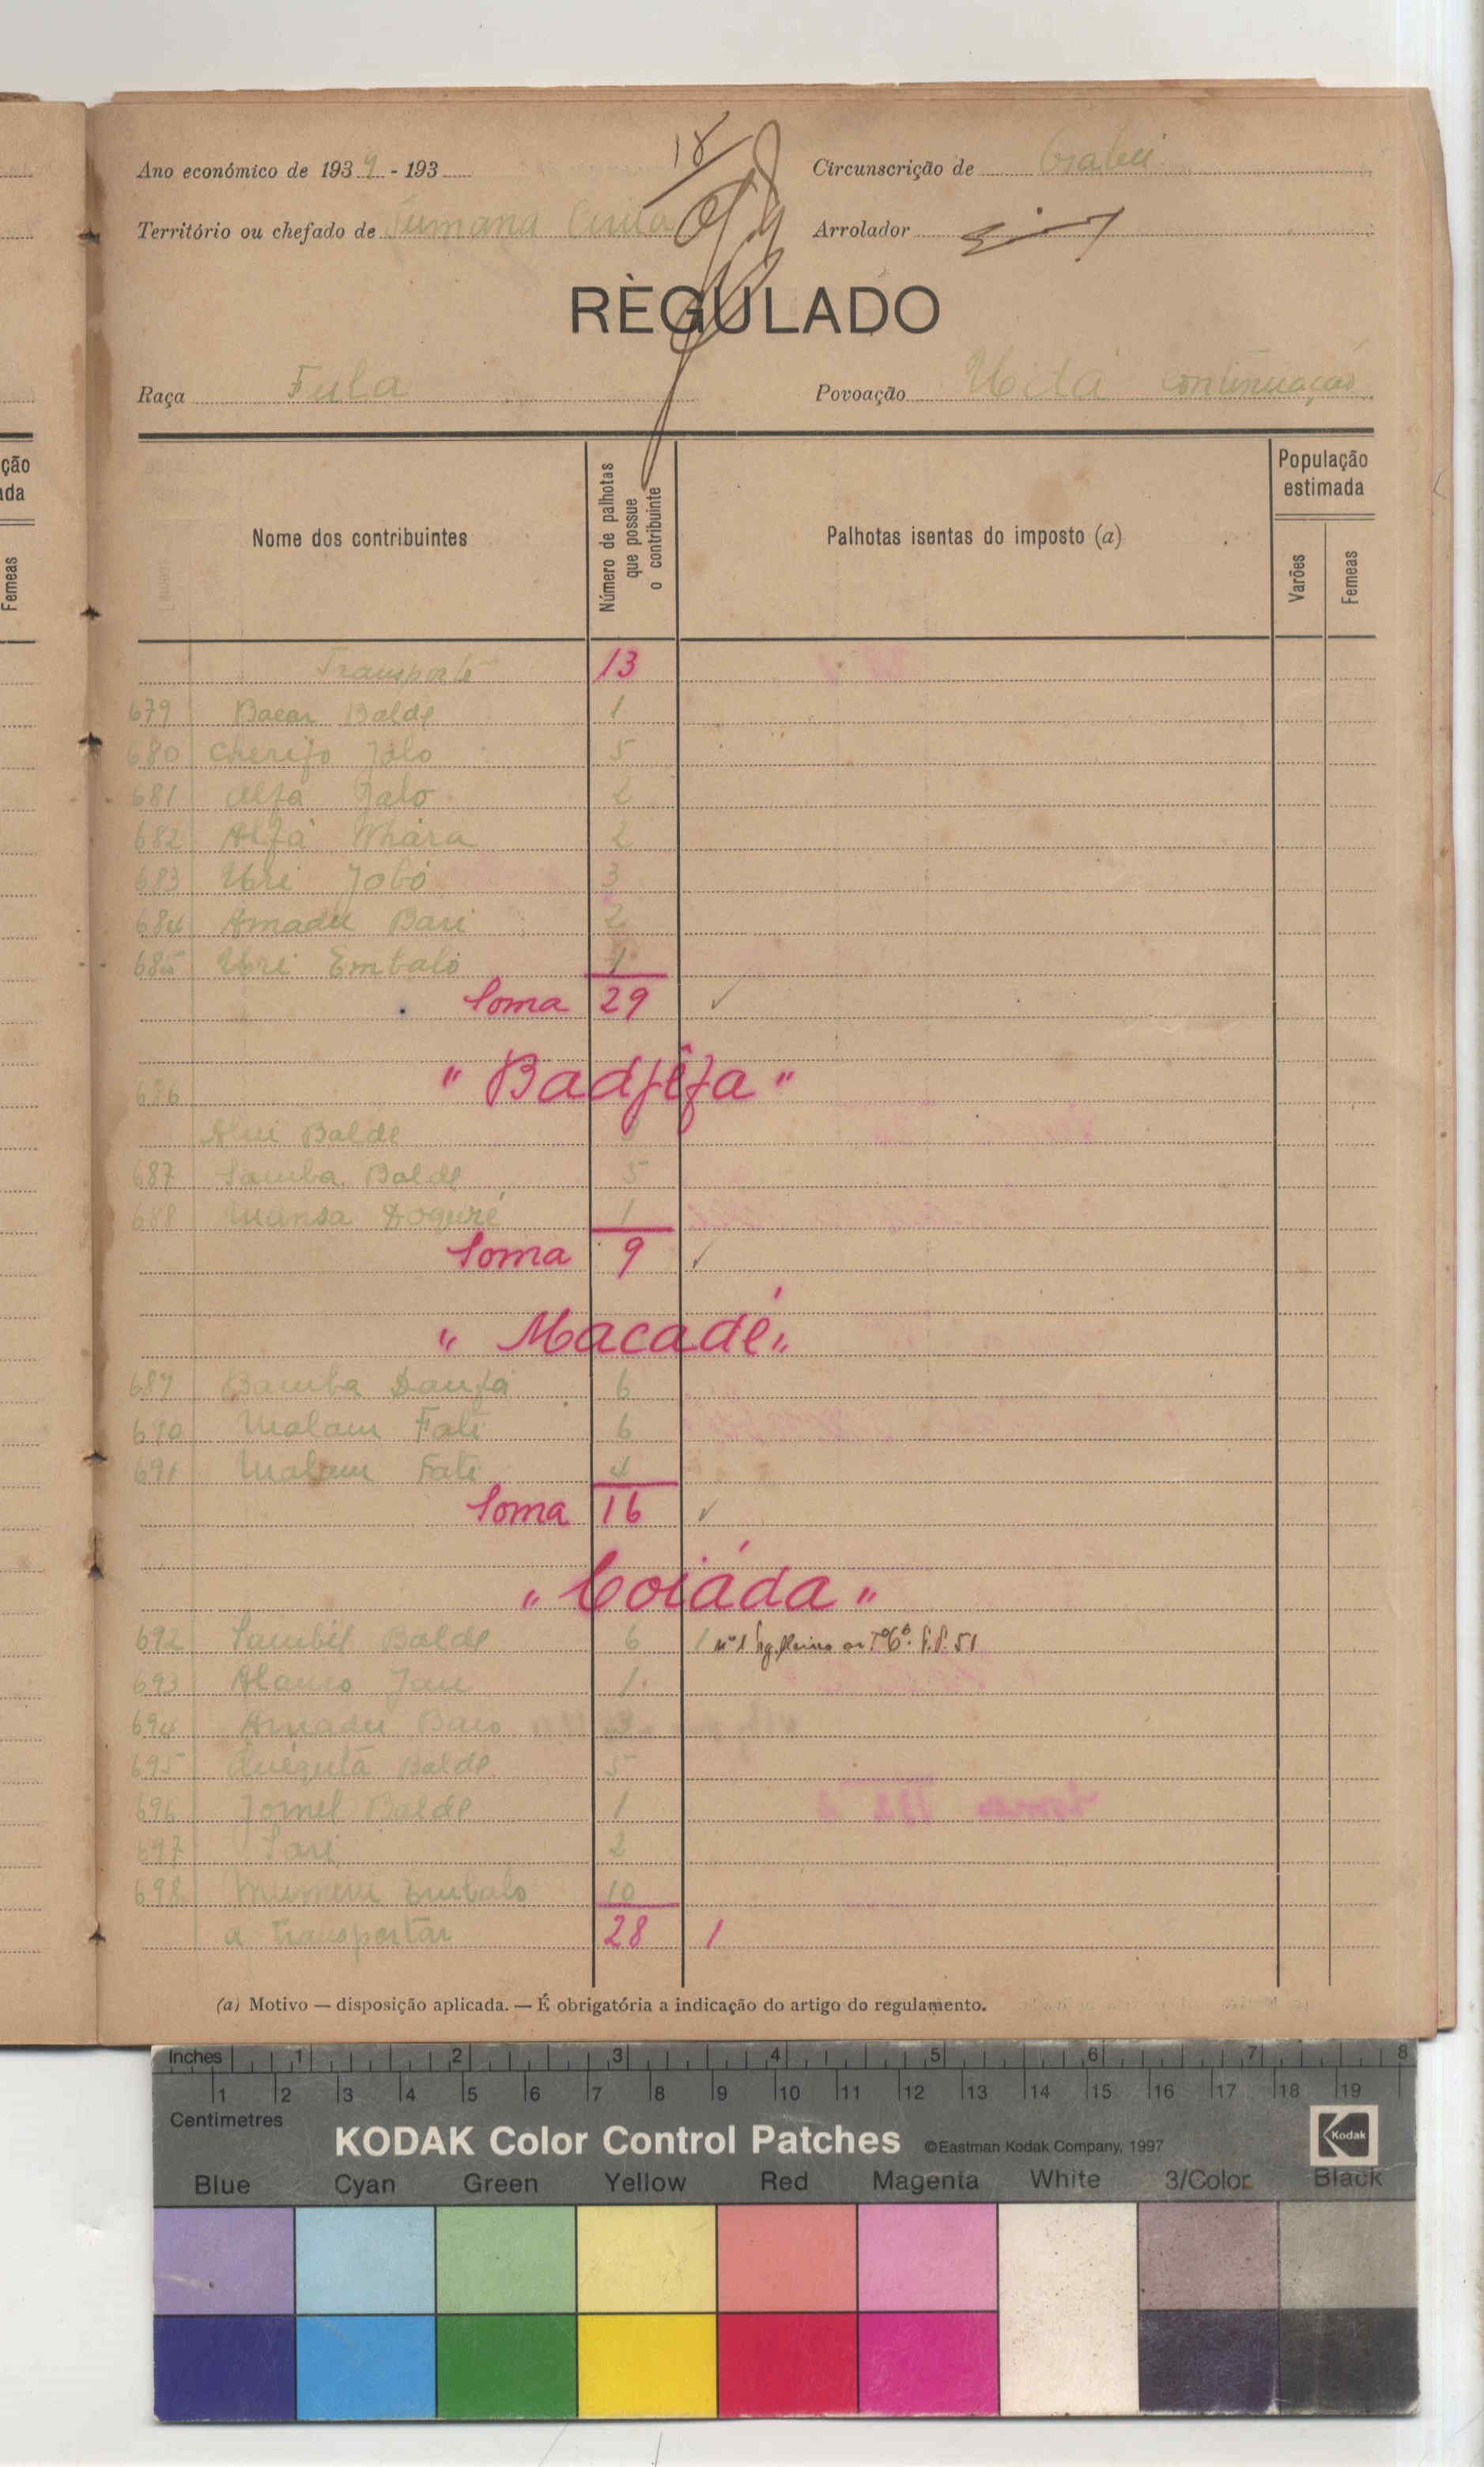 18
Ano económico de 1939 - 193
Circunscrição de Gabú
Território ou chefado de Tumana Cinta
Arrolador
RÈGULADO
Raça Fula
Povoação continuação
Nome dos contribuintes
Número de palhotas que possue o contribuinte
Palhotas isentas do imposto (a)
População estimada
Varões
Femeas
Transporte 13
679 Bacar Balde 1
680 Cherifo Jalo 5
681 Alfa Jalo 2
682 Alfa 2
683 Uri Jobó 3
684 Amadu Bari 2
685 Uri Embalo 1
Soma 29
" Badjifa "
686
Alui Balde
687 Samba Balde 5
688 Mansa 1
Soma 9
" Macadé "
689 Bamba Danfa 6
690 Malam Fati 6
691 Malam Fati 4
Soma 16
" Coiáda "
692 Balde 6 1
693 1
694 Amadu Baio 3
695 Balde 5
696 Balde 1
697 Sori 2
698 Embalo 10
a transportar 28 1
(a) Motivo — disposição aplicada. — É obrigatória a indicação do artigo do regulamento.
ção
da
Femeas
Inches 1 2 3 4 5 6 7 8
1 2 3 4 5 6 7 8 9 10 11 12 13 14 15 16 17 18 19
Centimetres
KODAK Color Control Patches ©Eastman Kodak Company, 1997 Kodak
Blue Cyan Green Yellow Red Magenta White 3/Color Black